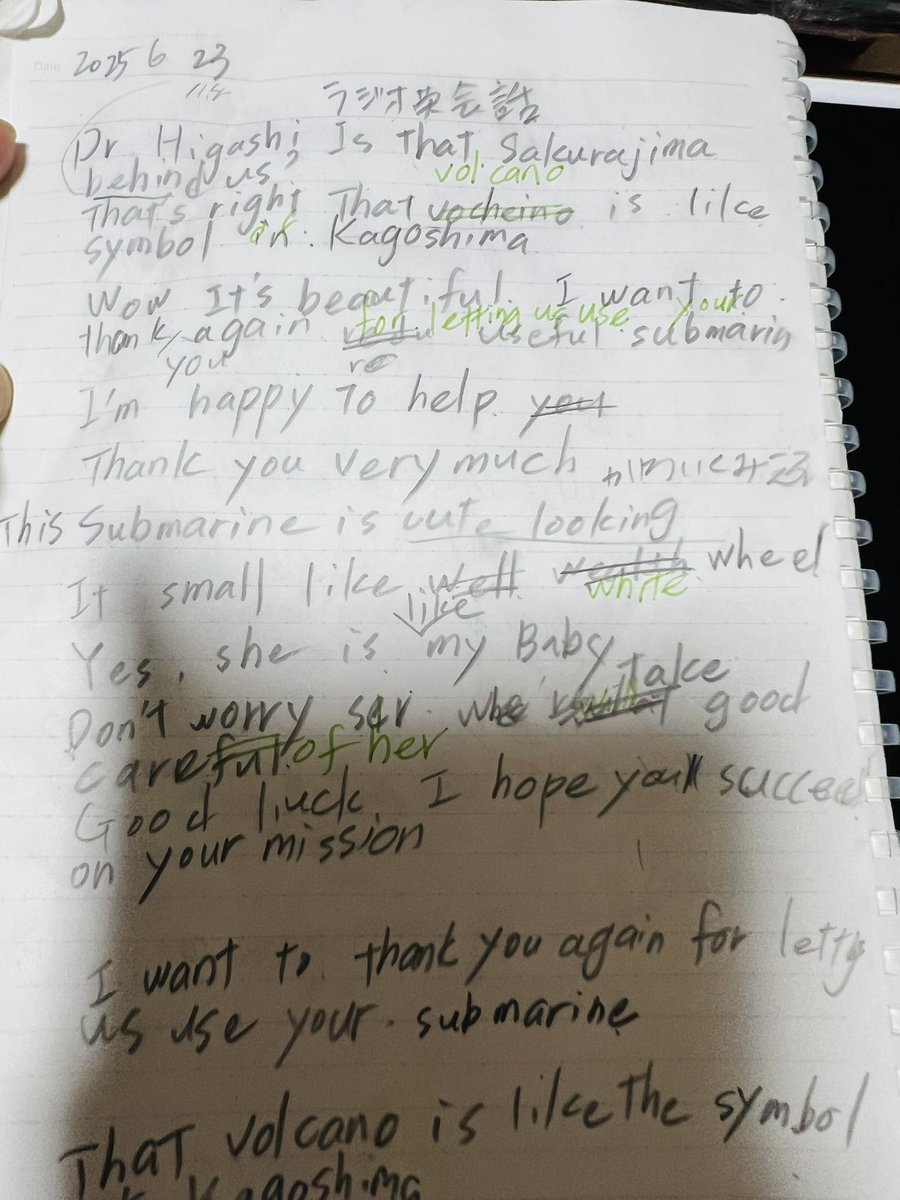 Date 2025 6 23
ラジオ英会話
Dr Higashi Is that Sakurajima
behind us?
volcano
That's right That is like
symbol of Kagoshima
Wow It's beautiful. I want to
for letting us use your
thank you again useful submarin
I'm happy to help you
Thank you very much
This Submarine is cute looking
It small like well wheel
white
like
Yes, she is my Baby
take
Don't worry sir. good
careful of her
Good luck I hope you'll succeed
on your mission
I want to thank you again for letting
us use your submarine
That volcano is like the symbol
Kagoshima